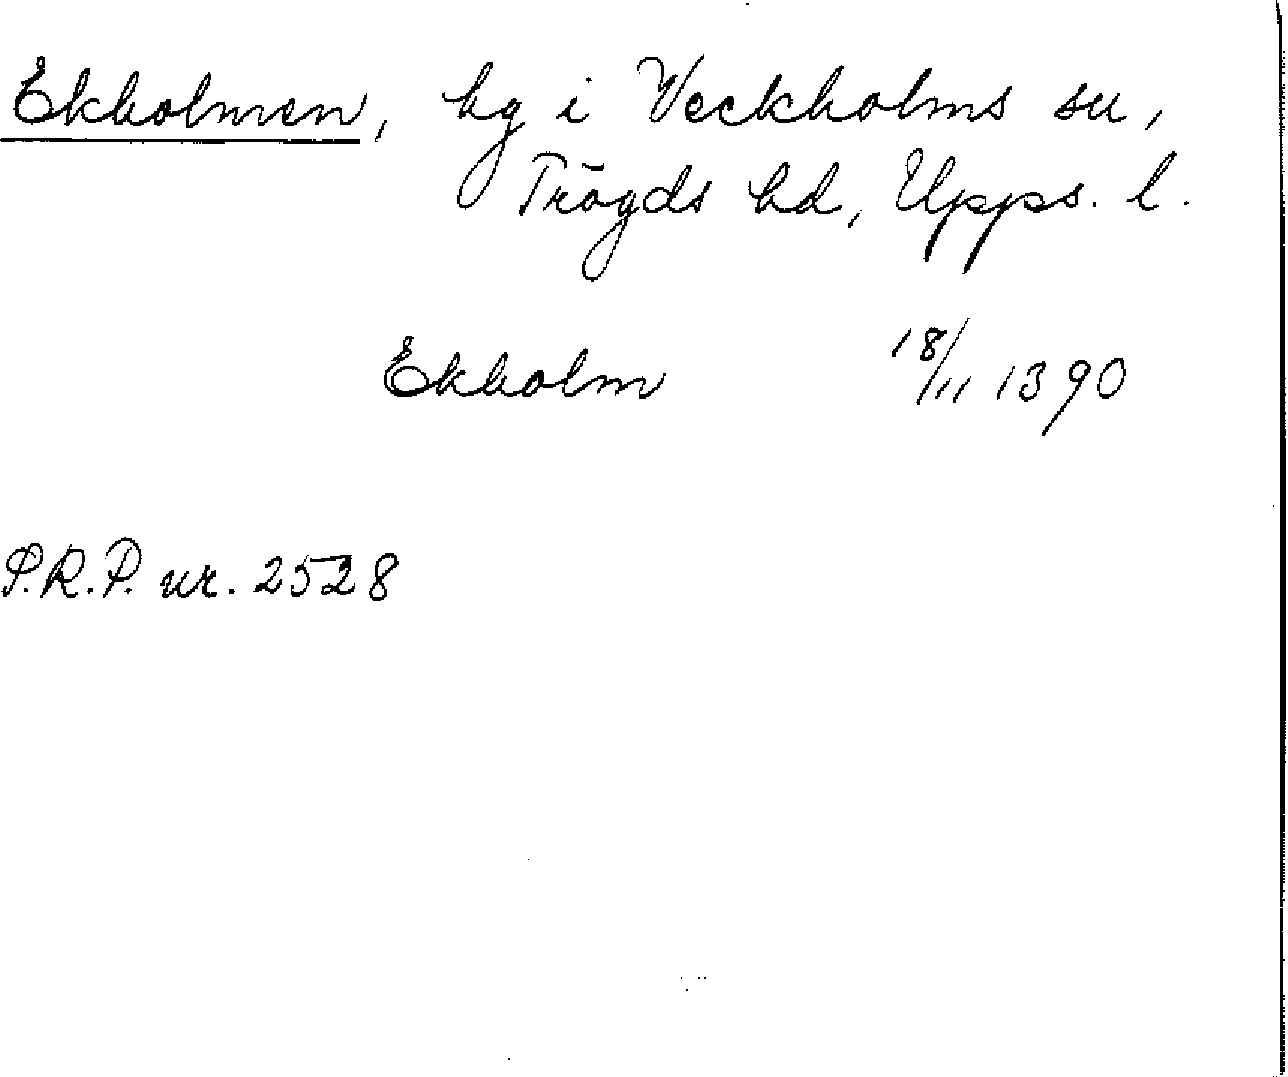 Ekholmen, hg i Veckholms sn,
Trögds hd, Upps. l.
Ekholm 18/11 1390
S.R.P. nr. 2528